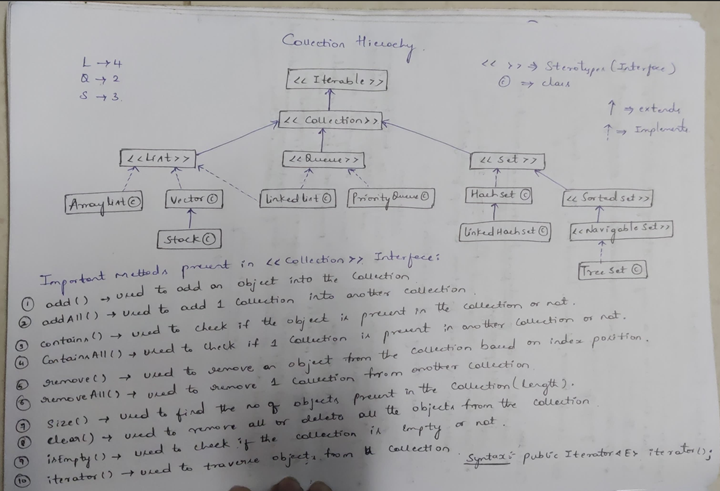 Collection Hierarchy
L → 4
Q → 2
S → 3
<< >> ⇒ Sterotypes (Interface)
© ⇒ class
↑ ⇒ extends
⇡ ⇒ Implements
<< Iterable >>
<< Collection >>
<<List>>
<<Queue>>
<<Set>>
ArrayList ©
Vector ©
Linked List ©
Priority Queue ©
Hashset ©
<<Sorted Set>>
Stack ©
Linked Hashset ©
<<Navigable Set>>
Tree Set ©
Important methods present in <<Collection>> Interface:
① add() → used to add an object into the Collection
② addAll() → used to add 1 Collection into another collection.
③ contains() → used to check if the object is present in the collection or not.
④ ContainsAll() → used to check if 1 Collection is present in another collection or not.
⑤ remove() → used to remove an object from the collection based on index position.
⑥ removeAll() → used to remove 1 Collection from another collection
⑦ Size() → used to find the no of objects present in the Collection (length).
⑧ clear() → used to remove all or delete all the objects from the collection.
⑨ isEmpty() → used to check if the collection is empty or not.
⑩ iterator() → used to traverse objects from collection. Syntax: public Iterator<E> iterator();